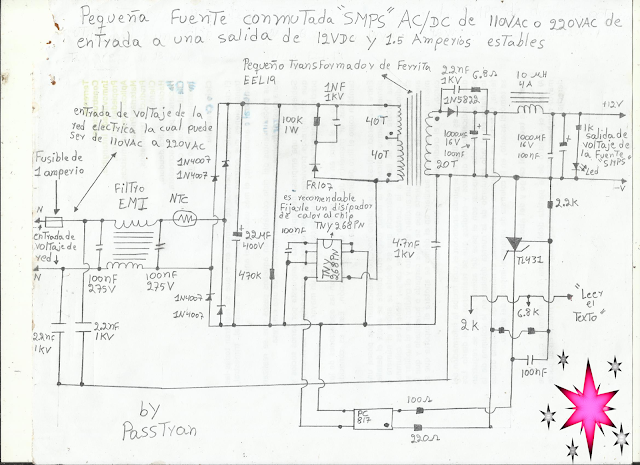 Pequeña Fuente conmutada "SMPS" AC/DC de 110VAC o 220VAC de
entrada a una salida de 12VDC y 1.5 Amperios estables
Pequeño Transformador de Ferrita
EEL19
entrada de voltaje de la
red electrica la cual puede
ser de 110VAC a 220VAC
Fusible de
1 amperio
Filtro
EMI
NTC
1N4007
1N4007
100K
1W
1NF
1KV
40T
40T
20T
2.2nF
1KV
6.8Ω
1N5822
1000MF
16V
100nF
10MH
4A
1000MF
16V
100nF
1K
Led
+12V
salida de
voltaje de
la Fuente
"SMPS"
-V
FR107
es recomendable
Fijarle un disipador
de calor al chip
TNY268PN
100nF
TNY
268PN
N
entrada de
voltaje de
red
N
100nF
275V
100nF
275V
22MF
400V
470K
1N4007
1N4007
4.7nF
1KV
2.2K
TL431
2K
6.8K
"Leer
el
Texto"
100nF
1KV
2.2nF
1KV
PC
817
100Ω
220Ω
by
PassTran